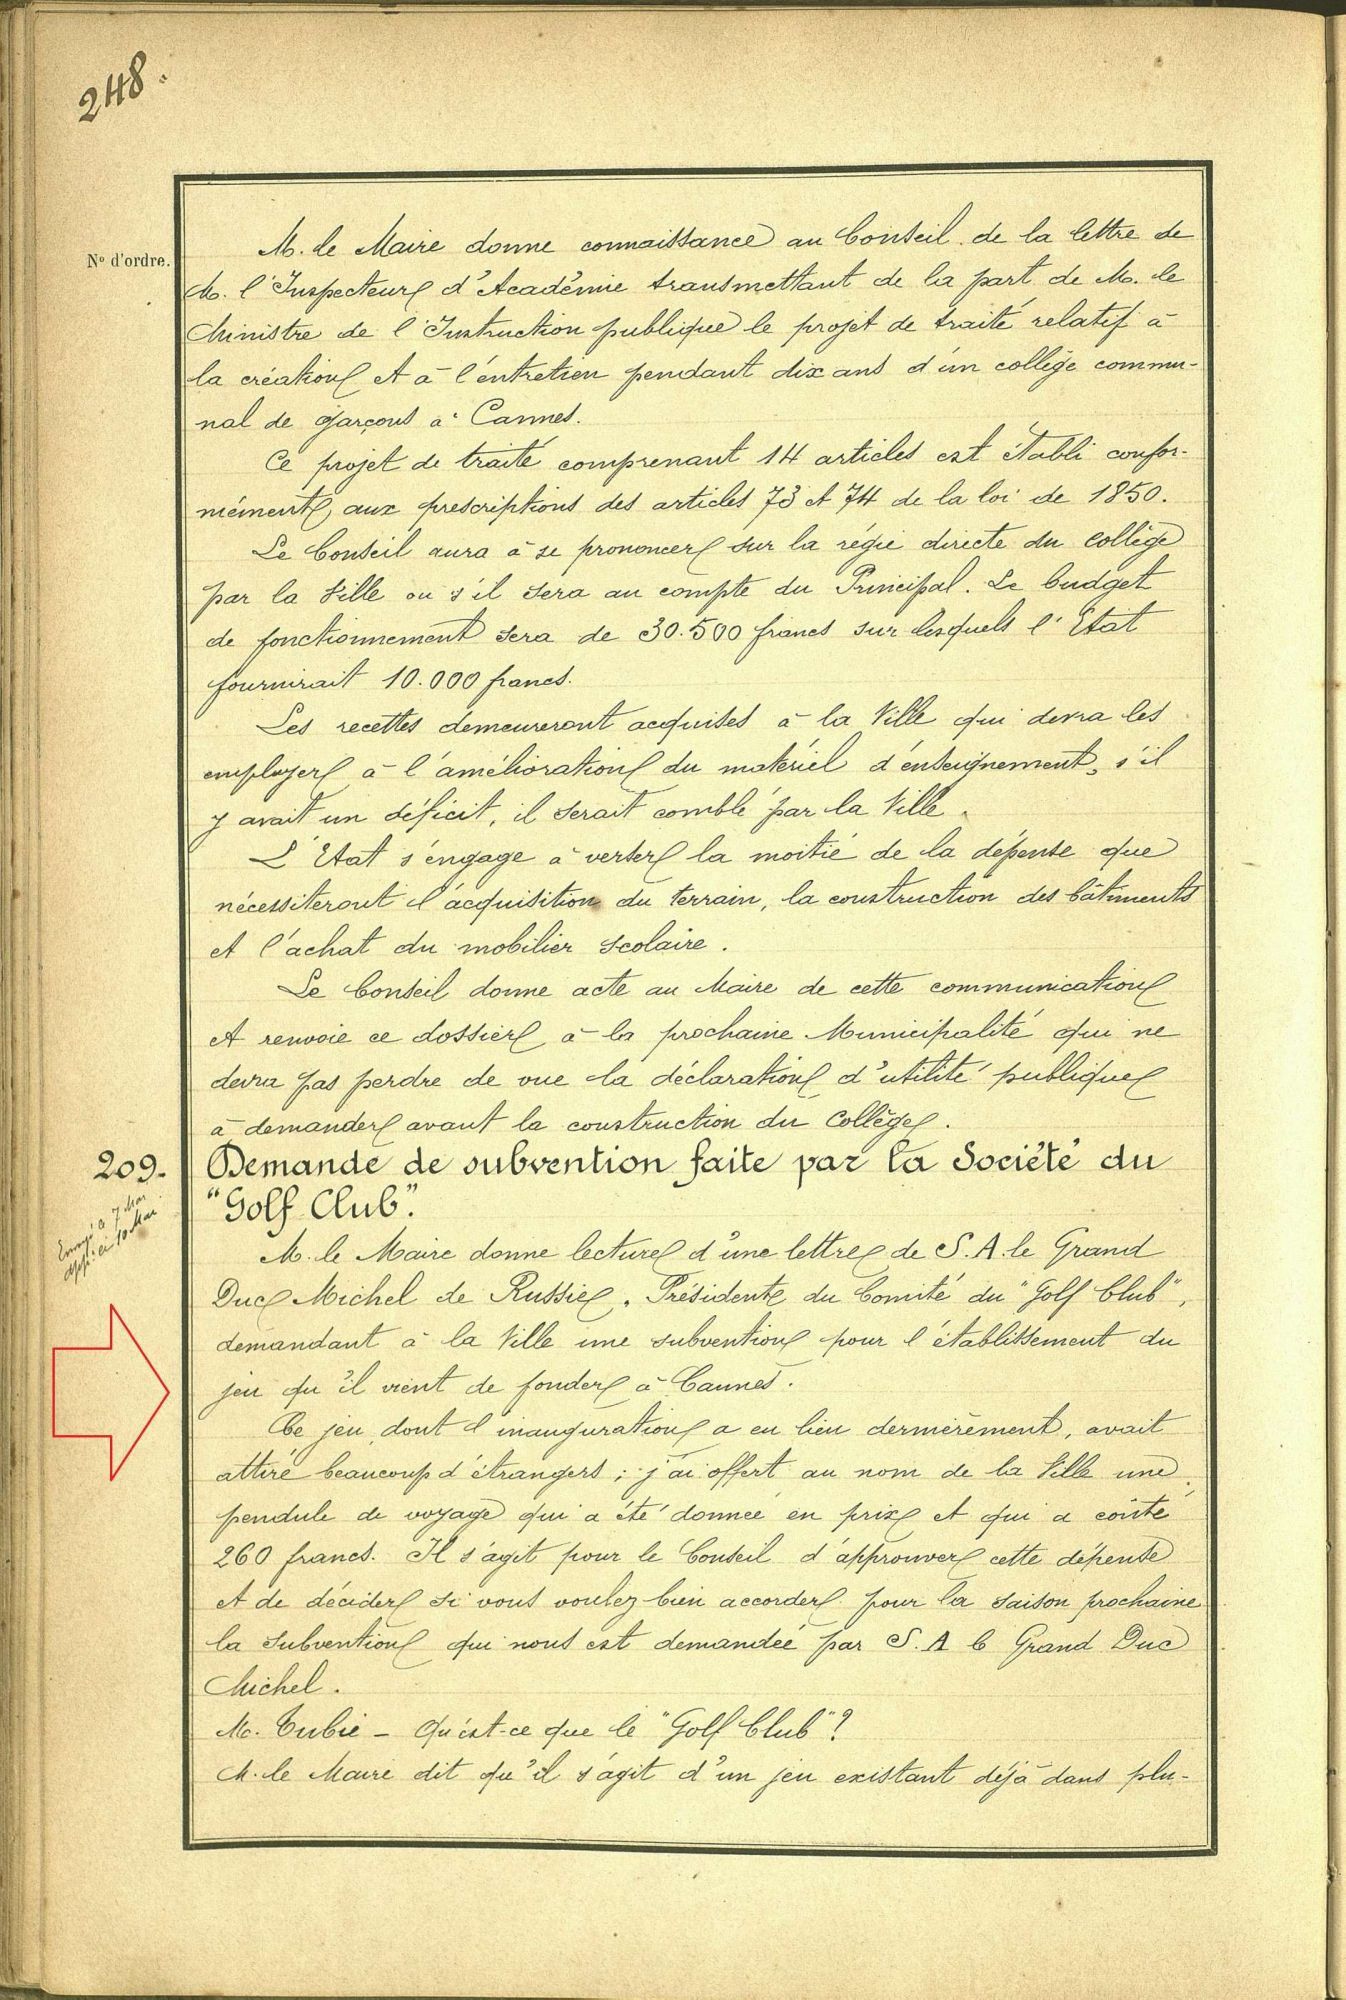 248.
N° d'ordre.
M. le Maire donne connaissance au Conseil de la lettre de
M. l'Inspecteur d'Académie transmettant de la part de M. le
Ministre de l'Instruction publique le projet de traité relatif à
la création et à l'entretien pendant dix ans d'un collège commu-
nal de garçons à Cannes.
Ce projet de traité comprenant 14 articles est établi confor-
mément aux prescriptions des articles 73 et 74 de la loi de 1850.
Le Conseil aura à se prononcer sur la régie directe du collège
par la Ville ou s'il sera au compte du Principal. Le budget
de fonctionnement sera de 30.500 francs sur lesquels l'État
fournirait 10.000 francs.
Les recettes demeureront acquises à la Ville qui devra les
employer à l'amélioration du matériel d'enseignement, s'il
y avait un déficit, il serait comblé par la Ville.
L'Etat s'engage à verser la moitié de la dépense que
nécessiteront l'acquisition du terrain, la construction des bâtiments
et l'achat du mobilier scolaire.
Le Conseil donne acte au Maire de cette communication
et renvoie ce dossier à la prochaine Municipalité qui ne
devra pas perdre de vue la déclaration d'utilité publique
à demander avant la construction du Collège.
209. Demande de subvention faite par la Société du
"Golf Club".
Envoyé le 7 Mai
app. le 10 Mai
M. le Maire donne lecture d'une lettre de S. A. le Grand
Duc Michel de Russie, Président du Comité du "Golf Club",
demandant à la Ville une subvention pour l'établissement du
jeu qu'il vient de fonder à Cannes.
Ce jeu, dont l'inauguration a eu lieu dernièrement, avait
attiré beaucoup d'étrangers ; j'ai offert au nom de la Ville une
pendule de voyage qui a été donnée en prix et qui a coûté
260 francs. Il s'agit pour le Conseil d'approuver cette dépense
et de décider si vous voulez bien accorder pour la saison prochaine
la subvention qui nous est demandée par S. A le Grand Duc
Michel.
M. Tubié - Qu'est-ce que le "Golf Club" ?
M. le Maire dit qu'il s'agit d'un jeu existant déjà dans plu-